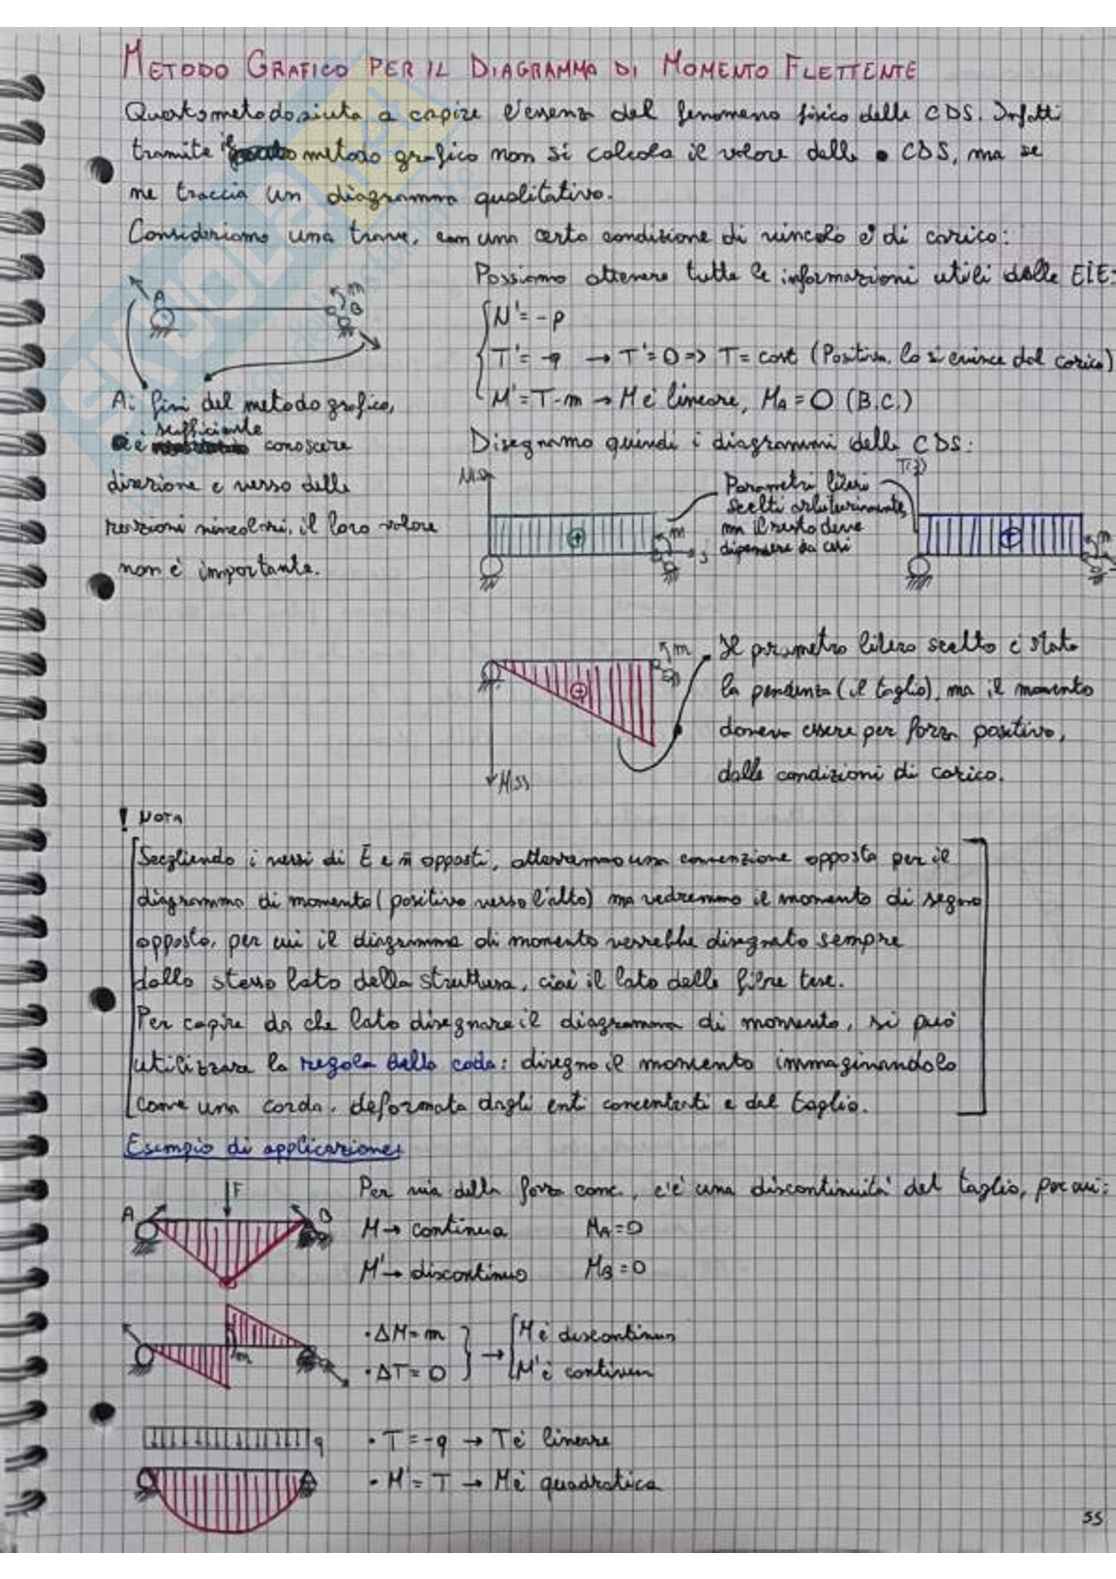 METODO GRAFICO PER IL DIAGRAMMA DI MOMENTO FLETTENTE
Questo metodo aiuta a capire l'essenza del fenomeno fisico delle CDS. Infatti
tramite il metodo grafico non si calcola il valore delle CDS, ma se
ne traccia un diagramma qualitativo.
Consideriamo una trave, con una certa condizione di vincolo e di carico:
Possiamo ottenere tutte le informazioni utili dalle EIE:
A
m
B
N' = -p
T' = -q → T' = 0 => T = cost (Positivo, lo si evince dal carico)
M' = T-m → M è lineare, MA = 0 (B.C.)
Ai fini del metodo grafico,
è sufficiente conoscere
direzione e verso delle
reazioni vincolari, il loro valore
non è importante.
Disegniamo quindi i diagrammi delle CDS:
Parametri liberi
scelti arbitrariamente,
ma il resto deve
dipendere da essi
+
m
s
T(z)
+
m
+
m
Il parametro libero scelto è stato
la pendenza (il taglio), ma il momento
doveva essere per forza positivo,
dalle condizioni di carico.
! NOTA
Scegliendo i versi di t e n opposti, otterremmo una convenzione opposta per il
diagramma di momento (positivo verso l'alto) ma vedremmo il momento di segno
opposto, per cui il diagramma di momento verrebbe disegnato sempre
dallo stesso lato della struttura, cioè il lato delle fibre tese.
Per capire da che lato disegnare il diagramma di momento, si può
utilizzare la regola della coda: disegno il momento immaginandolo
come una corda, deformata dagli enti concentrati e dal taglio.
Esempio di applicazione:
F
A
B
Per via della forza conc., c'è una discontinuità del taglio, per cui:
M → continua MA = 0
M' → discontinuo MB = 0
m
• ΔM = m
• ΔT = 0
→
M è discontinuo
M' è continua
q
• T = -q → T è lineare
• M' = T → M è quadratica
55